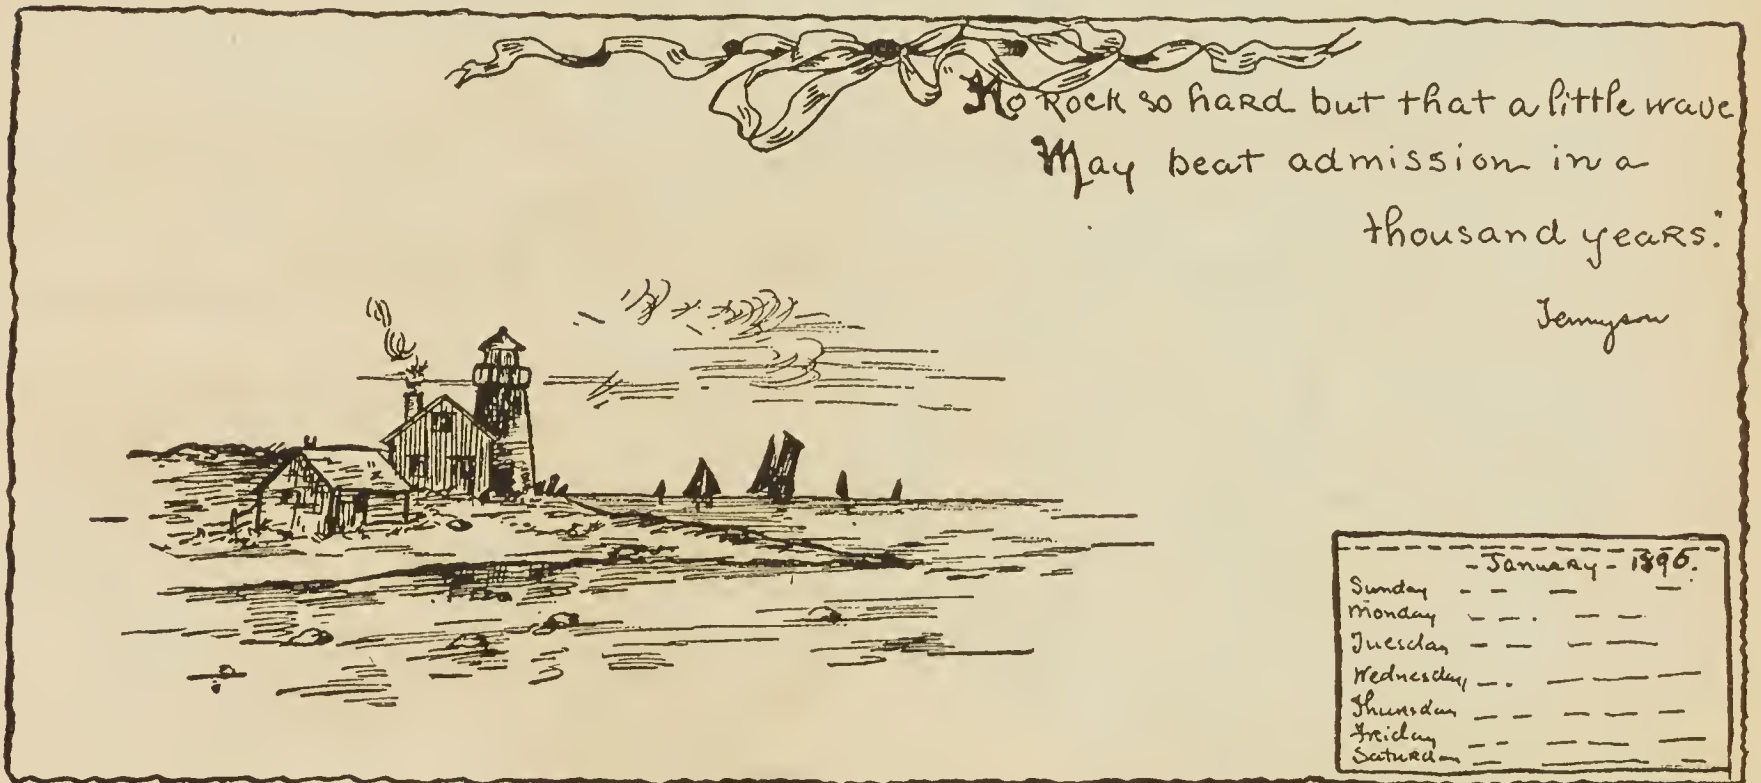 No Rock so hard but that a little wave
May beat admission in a
thousand years."
Tennyson
- January - 1896.
Sunday
Monday
Tuesday
Wednesday
Thursday
Friday
Saturday